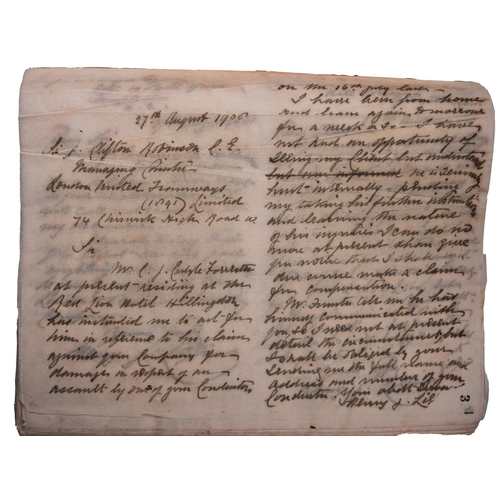 27th August 1906
Sir J. Clifton Robinson C.E.
Managing Director
London United Tramways
(1901) Limited
74 Chiswick High Road W.
Sir
Mr C. J. Carlyle Forrester
at present residing at the
Red Lion Hotel Hillingdon
has instructed me to act for
him in reference to his claim
against your Company for
damages in respect of an
assault by one of your Conductors
on the 16th July last
I have been from home
and leave again tomorrow
for a week or so. I have
not had an opportunity of
seeing my Client but understand
he is seriously
hurt internally - pending
my taking his further instructions
and learning the nature
of his injuries I can do no
more at present than give
you notice that I shall in
due course make a claim
for compensation.
Mr. tells me he has
himself communicated with
you so I need not at present
detail the circumstances but
I shall be obliged by your
sending me the full name and
address and number of your
Conductor. Yours
Henry J.
3